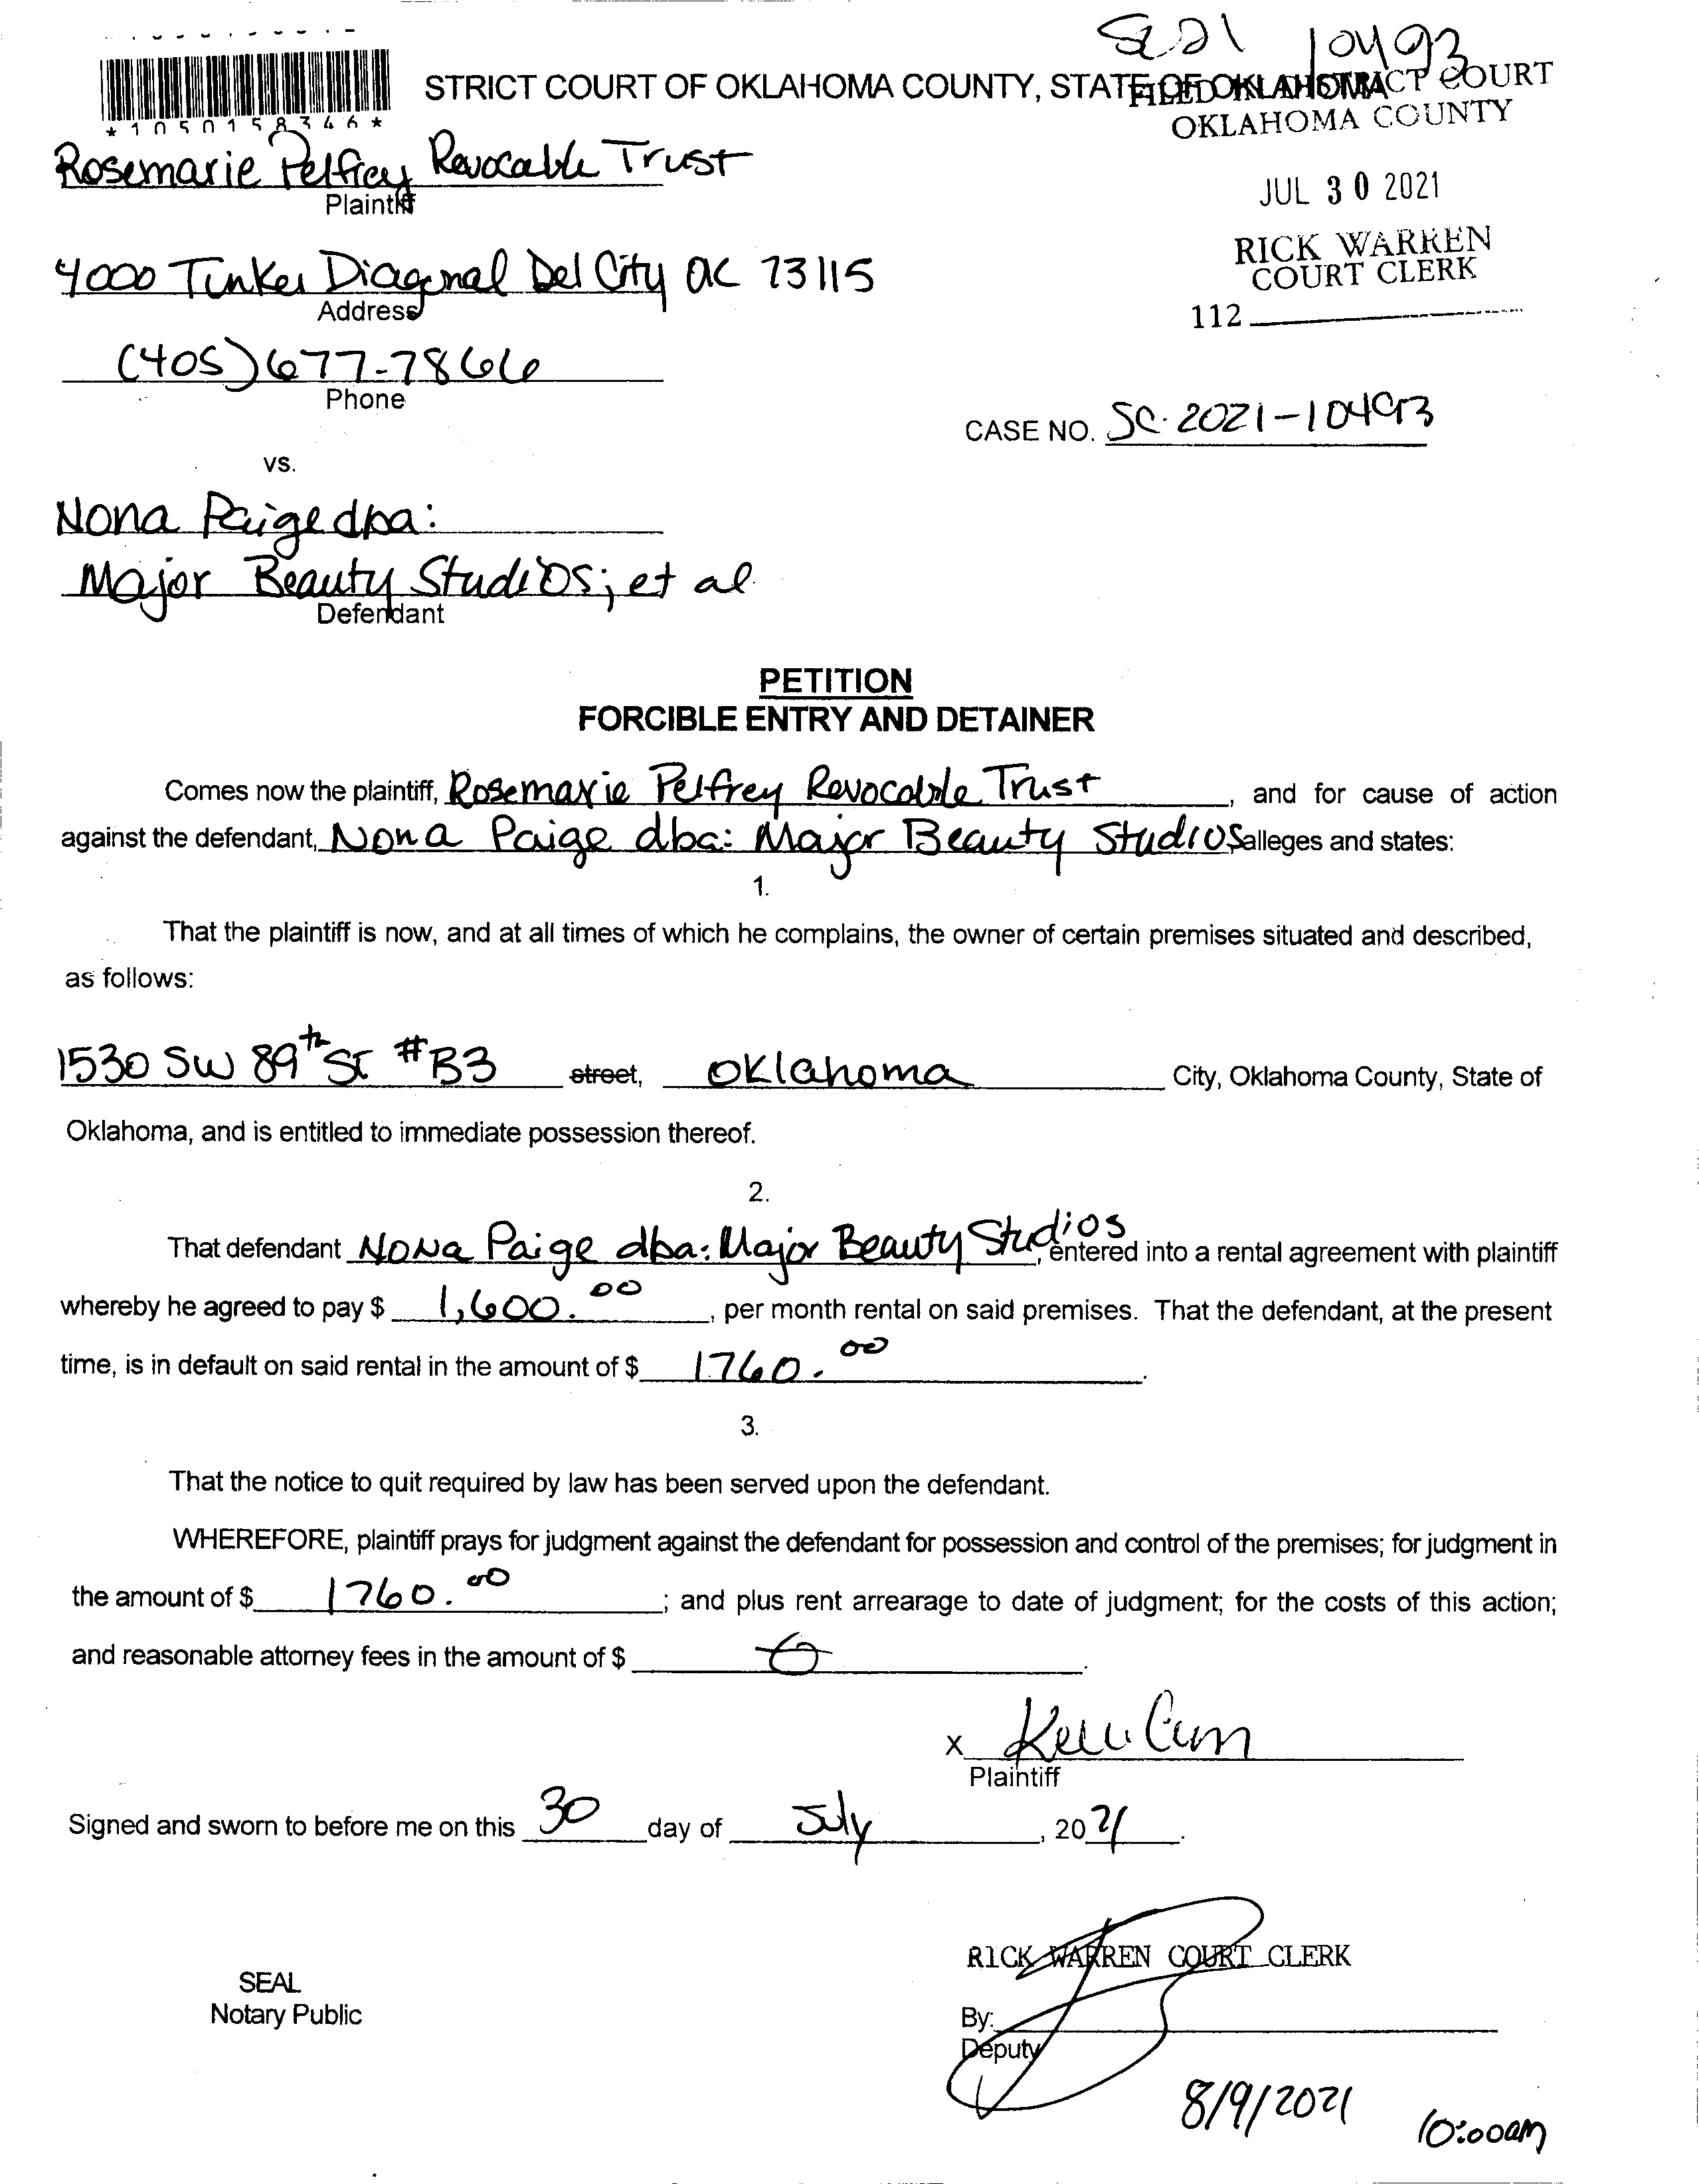 SC21 10493
STRICT COURT OF OKLAHOMA COUNTY, STATE OF OKLAHOMA
FILED IN DISTRICT COURT
OKLAHOMA COUNTY
*1050158346*
Rosemarie Pelfrey Revocable Trust
Plaintiff
JUL 30 2021
RICK WARREN
COURT CLERK
4000 Tinker Diagonal Del City OK 73115
Address
112
(405) 677-7866
Phone
CASE NO. SC-2021-10493
vs.
Nona Paige dba:
Major Beauty Studios; et al
Defendant
PETITION
FORCIBLE ENTRY AND DETAINER
Comes now the plaintiff, Rosemarie Pelfrey Revocable Trust, and for cause of action
against the defendant, Nona Paige dba: Major Beauty Studios alleges and states:
1.
That the plaintiff is now, and at all times of which he complains, the owner of certain premises situated and described,
as follows:
1530 SW 89th St #B3 street, Oklahoma City, Oklahoma County, State of
Oklahoma, and is entitled to immediate possession thereof.
2.
That defendant Nona Paige dba: Major Beauty Studios, entered into a rental agreement with plaintiff
whereby he agreed to pay $ 1,600.00, per month rental on said premises. That the defendant, at the present
time, is in default on said rental in the amount of $ 1760.00.
3.
That the notice to quit required by law has been served upon the defendant.
WHEREFORE, plaintiff prays for judgment against the defendant for possession and control of the premises; for judgment in
the amount of $ 1760.00; and plus rent arrearage to date of judgment; for the costs of this action;
and reasonable attorney fees in the amount of $ 0.
X
Plaintiff
Signed and sworn to before me on this 30 day of July, 2021.
RICK WARREN COURT CLERK
SEAL
Notary Public
By:
Deputy
8/9/2021 10:00am